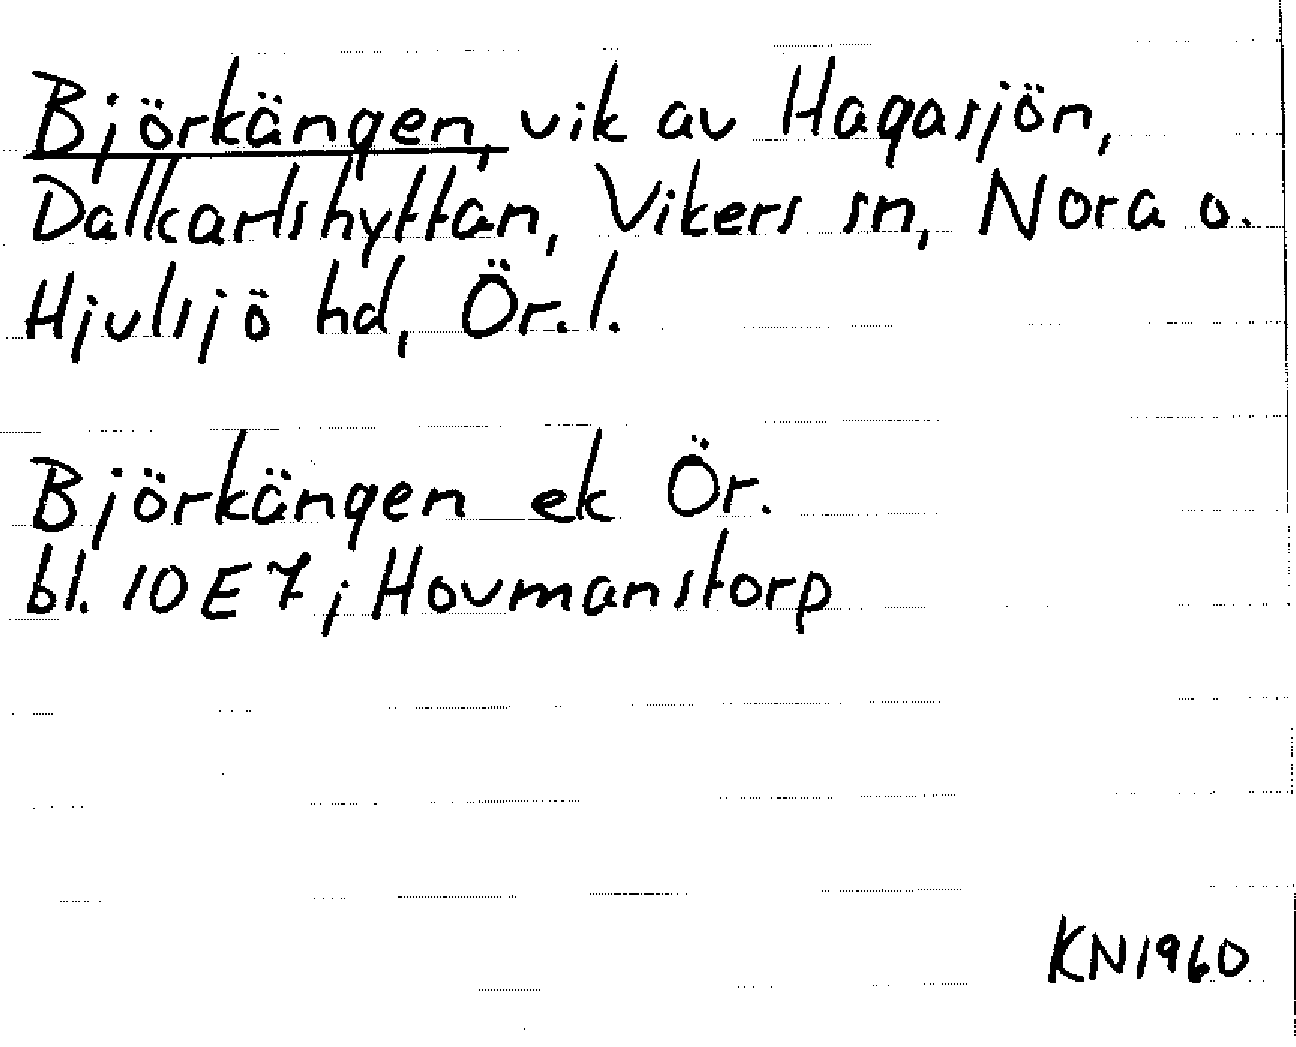 Björkängen, vik av Hagasjön,
Dalkarlshyttan, Vikers sn, Nora o.
Hjulsjö hd, Ör. l.
Björkängen ek Ör.
bl. 10E7; Hovmanstorp
KN1960